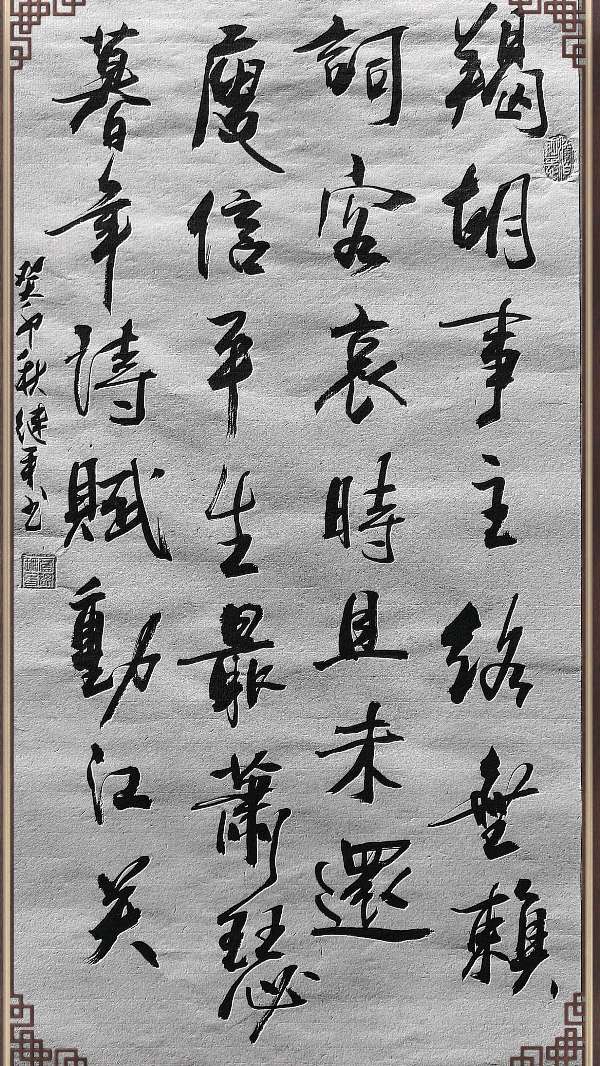 羯胡事主終無賴
詞客哀時且未還
庾信平生最蕭瑟
暮年詩賦動江关
癸卯秋继书